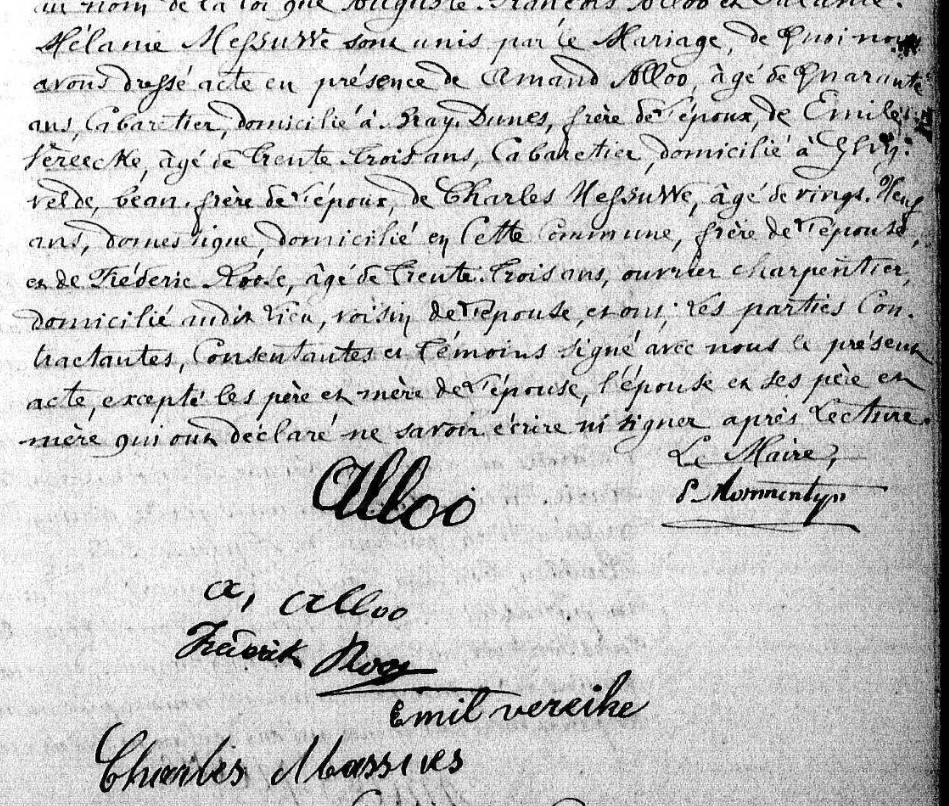 au nom de la loi que Auguste François Alloo et
Mélanie Messuwe sont unis par le Mariage, de Quoi nous
avons dressé acte en présence de Amand Alloo, âgé de Quarante
ans, Cabaretier, domicilié à Bray-Dunes, frère de l'époux, de Emile
Vereecke, âgé de Trente-Trois ans, Cabaretier, domicilié à Ghy-
velde, beau-frère de l'époux, de Charles Messuwe, âgé de vingt-Neuf
ans, domestique, domicilié en Cette Commune, frère de l'épouse,
et de Fréderic Roose, âgé de Trente-Trois ans, ouvrier charpentier,
domicilié audit Lieu, voisin de l'épouse, et ont, les parties Con-
tractantes, Consentantes et Témoins signé avec nous le présent
acte, excepté les père et mère de l'épouse, l'épouse et ses père et
mère qui ont déclaré ne savoir écrire ni signer après Lecture.
Le Maire,
Alloo
a, alloo
Roose
Emil vereike
Charles